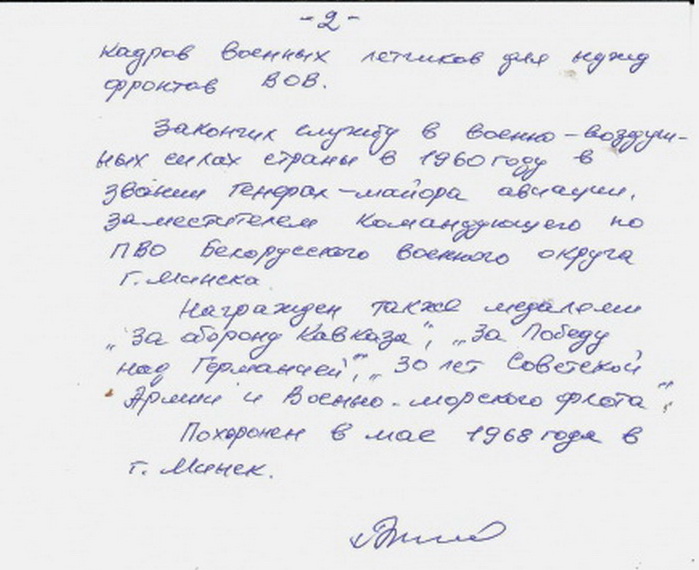 - 2 -
кадров военных летчиков для нужд
фронтов ВОВ.
Закончил службу в военно-воздуш-
ных силах страны в 1960 году в
звании Генерал-майора авиации,
заместителем Командующего по
ПВО Белорусского военного округа
г. Минска
Награжден также медалями
„За оборону Кавказа", „За Победу
над Германией", „30 лет Советской
Армии и Военно-морского флота";
Похоронен в мае 1968 года в
г. Минск.